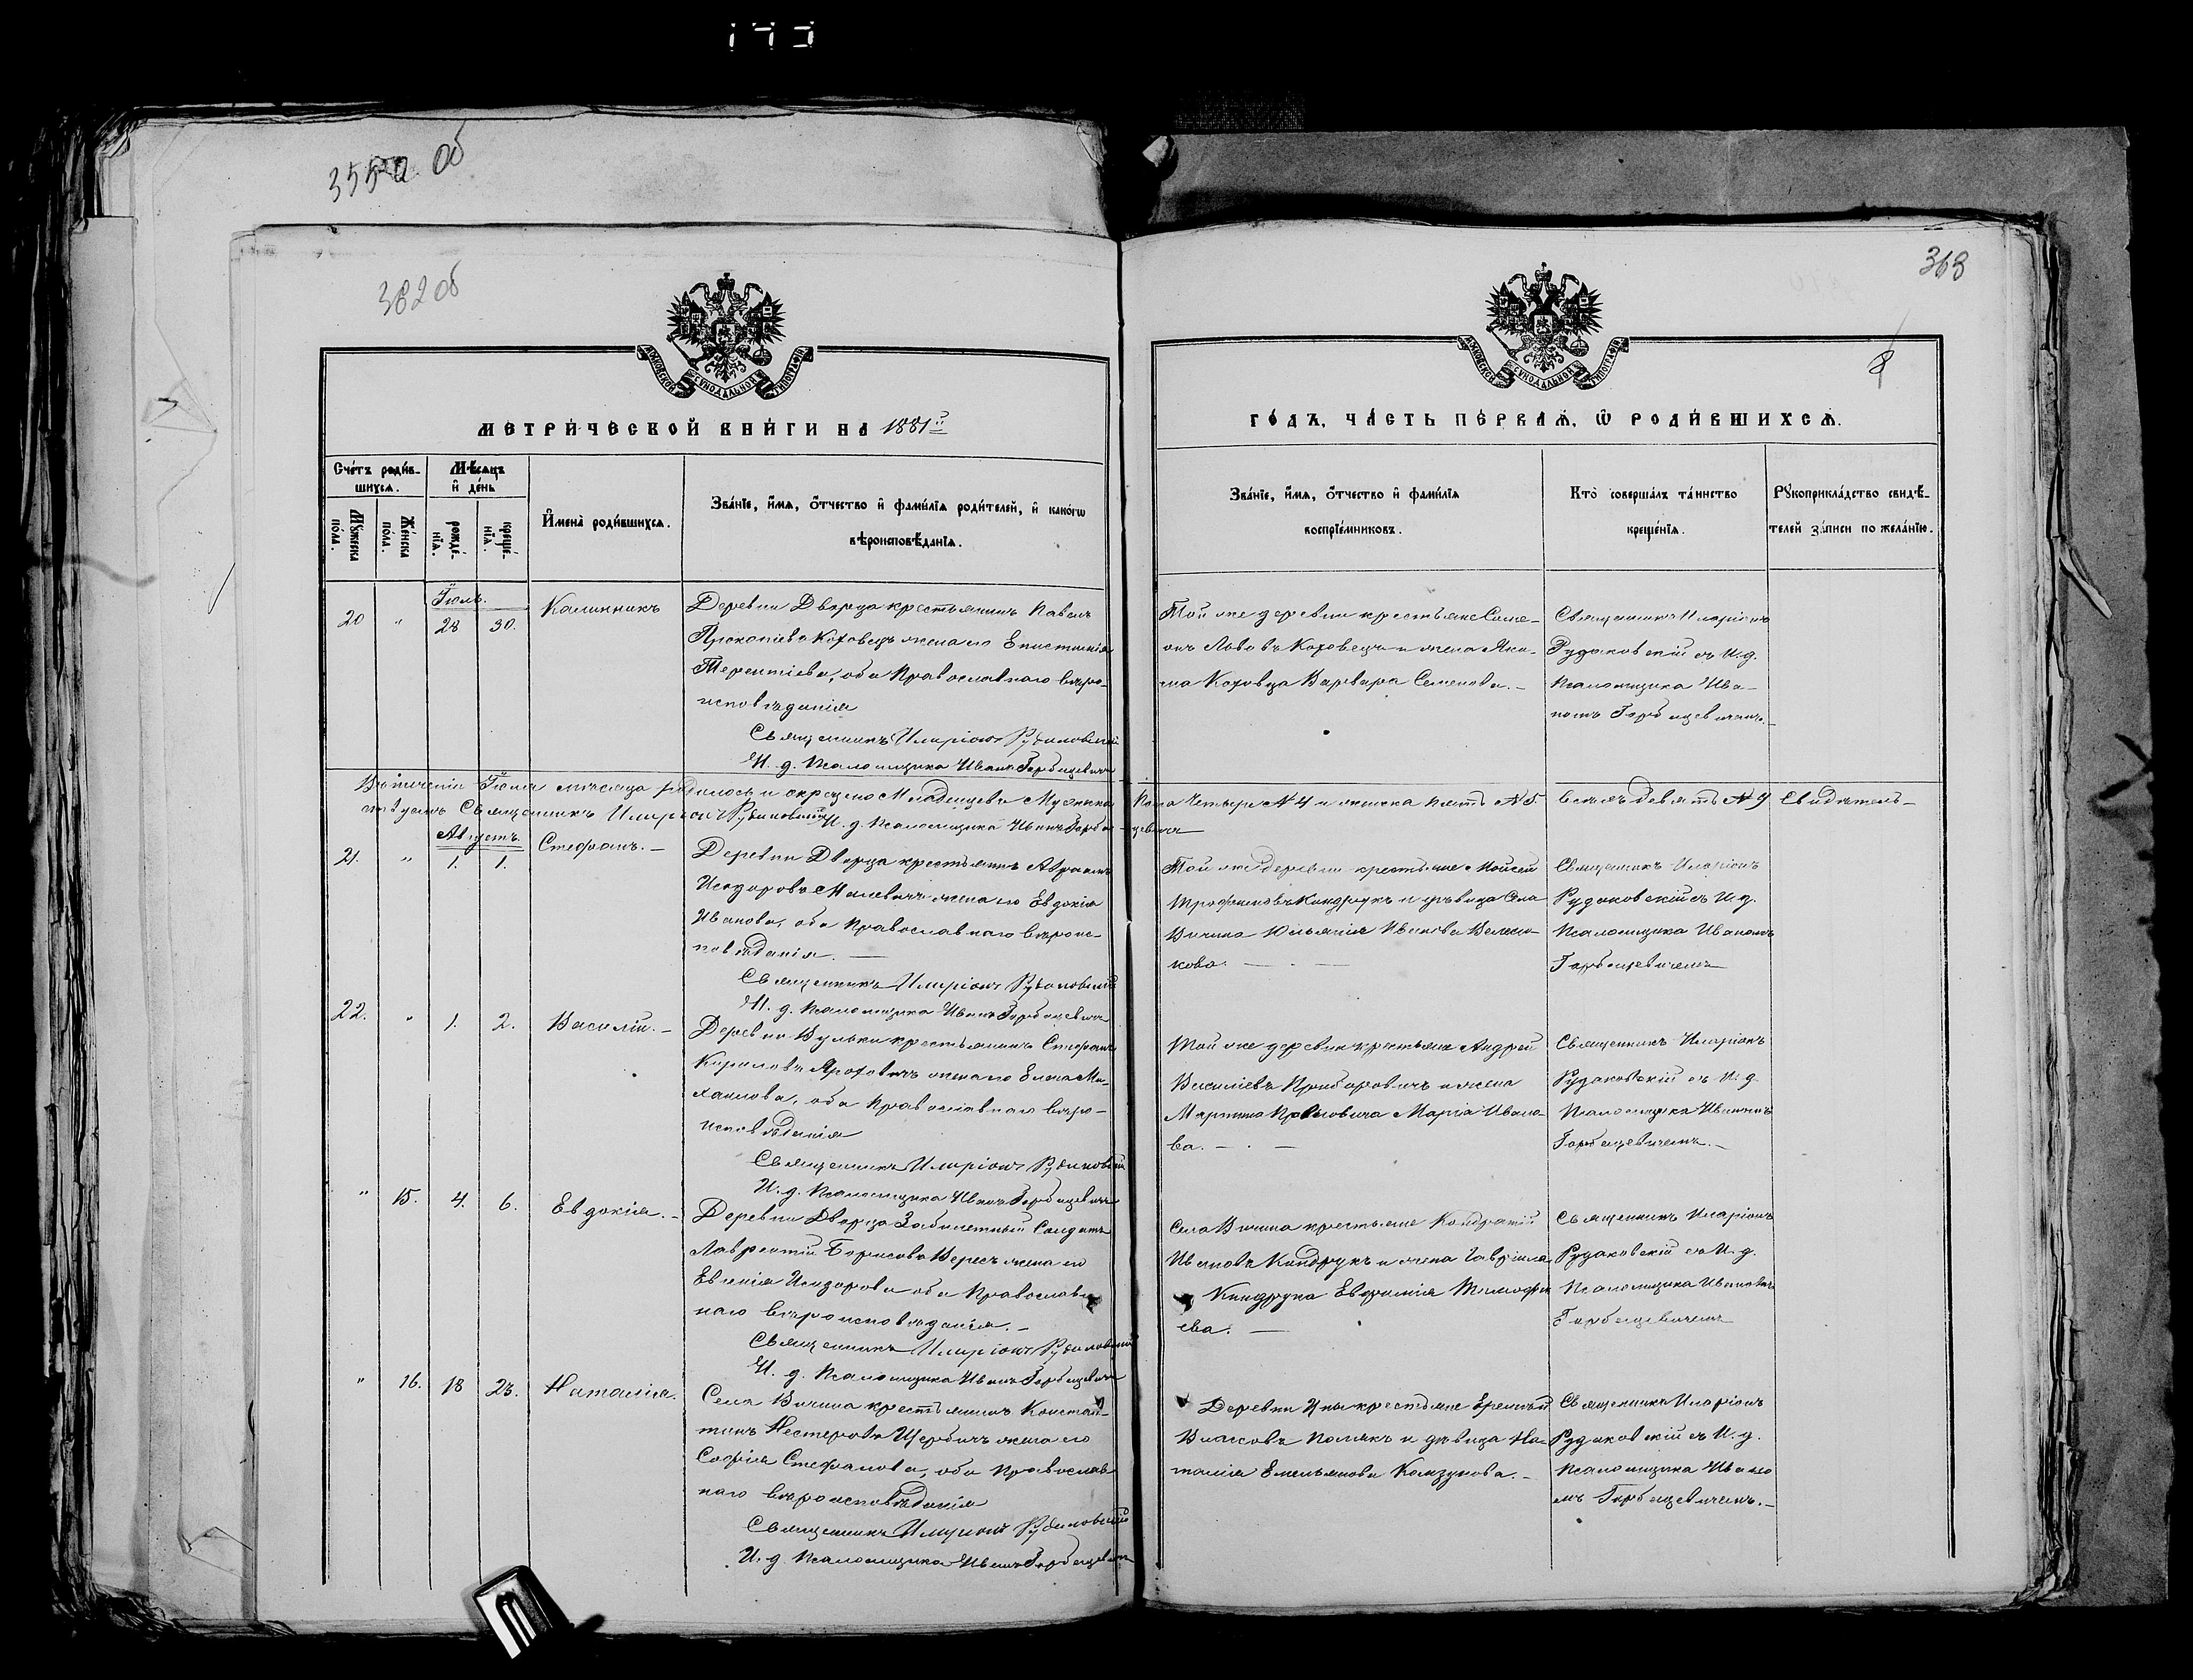 382 об
368
8
МЕТРИЧЕСКОЙ КНИГИ НА 1881й
ГОДЪ, ЧАСТЬ ПЕРВАЯ, Ѡ РОДИВШИХСЯ.
МОСКОВСКОЙ СѴНОДАЛЬНОЙ ТИПОГРАФІИ
МОСКОВСКОЙ СѴНОДАЛЬНОЙ ТИПОГРАФІИ
Счетъ родив-
шихся.
Мѣсяцъ
и день
Мужеска пола.
Женска пола.
рожде-
нія.
креще-
нія.
Имена родившихся.
Званіе, имя, отчество и фамилія родителей, и какогѡ
вѣроисповѣданія.
Званіе, имя, отчество и фамилія
воспріемниковъ.
Кто совершалъ таинство
крещенія.
Рукоприкладство свидѣ-
телей записи по желанію.
Іюль.
20 " 28 30. Калинникъ
Деревни Дворца крестьянинъ Павелъ
Прокопіевъ Коховецъ жена его Епистимія
Терентіева, оба Православнаго вѣро-
исповѣданія
Священникъ Иларіонъ Рудаковскій
И. д. Псаломщика Иванъ Горбацевичъ
Той же деревни крестьяне Симе-
онъ Львовъ Коховецъ и жена Яки-
ма Коховца Варвара Семенова. –
Священникъ Иларіонъ
Рудаковскій съ И. д.
Псаломщика Ива-
номъ Горбацевичемъ. –
Въ теченіи Іюля мѣсяца родилось и окрещено Младенцевъ Мужеска
Пола Четыре № 4 и женска пять № 5 всего девять № 9 Свидѣтель-
ствуемъ Священникъ Иларіонъ Рудаковскій И. д. Псаломщика Иванъ Горба-
цевичъ
Августъ.
21. " 1. 1. Стефанъ. –
Деревни Дворца крестьянинъ Авраамъ
Исидоровъ Малевичъ жена его Евдокія
Иванова, оба Православнаго вѣроис-
повѣданія. –
Священникъ Иларіонъ Рудаковскій
И. д. Псаломщика Иванъ Горбацевичъ
Той же деревни крестьяне Моисей
Трофимовъ Кондрукъ и дѣвица Села
Вичина Юліанія Иванова
кова. – . –
Священникъ Иларіонъ
Рудаковскій съ И. д.
Псаломщика Иваномъ
Горбацевичемъ
22. " 1. 2. Василій. –
Деревни Вульки крестьянинъ Стефанъ
Кириловъ жена его Елена Ми-
хаилова, оба Православнаго вѣро-
исповѣданія
Священникъ Иларіонъ Рудаковскій
И. д. Псаломщика Иванъ Горбацевичъ
Той же деревни крестьяне Андрей
Василіевъ и жена
Мартина Марія Ивано-
ва. – . –
Священникъ Иларіонъ
Рудаковскій съ И. д.
Псаломщика Иваномъ
Горбацевичемъ. –
" 15. 4. 6. Евдокія. –
Деревни Дворца Забилетный Солдатъ
Лаврентій Борисовъ Вересъ жена его
Евгенія Исидорова оба Православ-
наго вѣроисповѣданія. –
Священникъ Иларіонъ Рудаковскій
И. д. Псаломщика Иванъ Горбацевичъ
Села Вичина крестьяне Кондратій
Ивановъ Кондрукъ и жена Гавріила
Кондрука Евфимія Тимофе-
ева. –
Священникъ Иларіонъ
Рудаковскій съ И. д.
Псаломщика Иваномъ
Горбацевичемъ
" 16. 18 23. Наталія.
Села Вичина крестьянинъ Констан-
тинъ Нестеровъ Щербичъ жена его
Софія Стефанова, оба Православ-
наго вѣроисповѣданія
Священникъ Иларіонъ Рудаковскій
И. д. Псаломщика Иванъ Горбацевичъ
Деревни Цны крестьяне Еремей
Власовъ Полякъ и дѣвица На-
талія Емельянова
Священникъ Иларіонъ
Рудаковскій съ И. д.
Псаломщика Ивано
мъ Горбацевичемъ. –